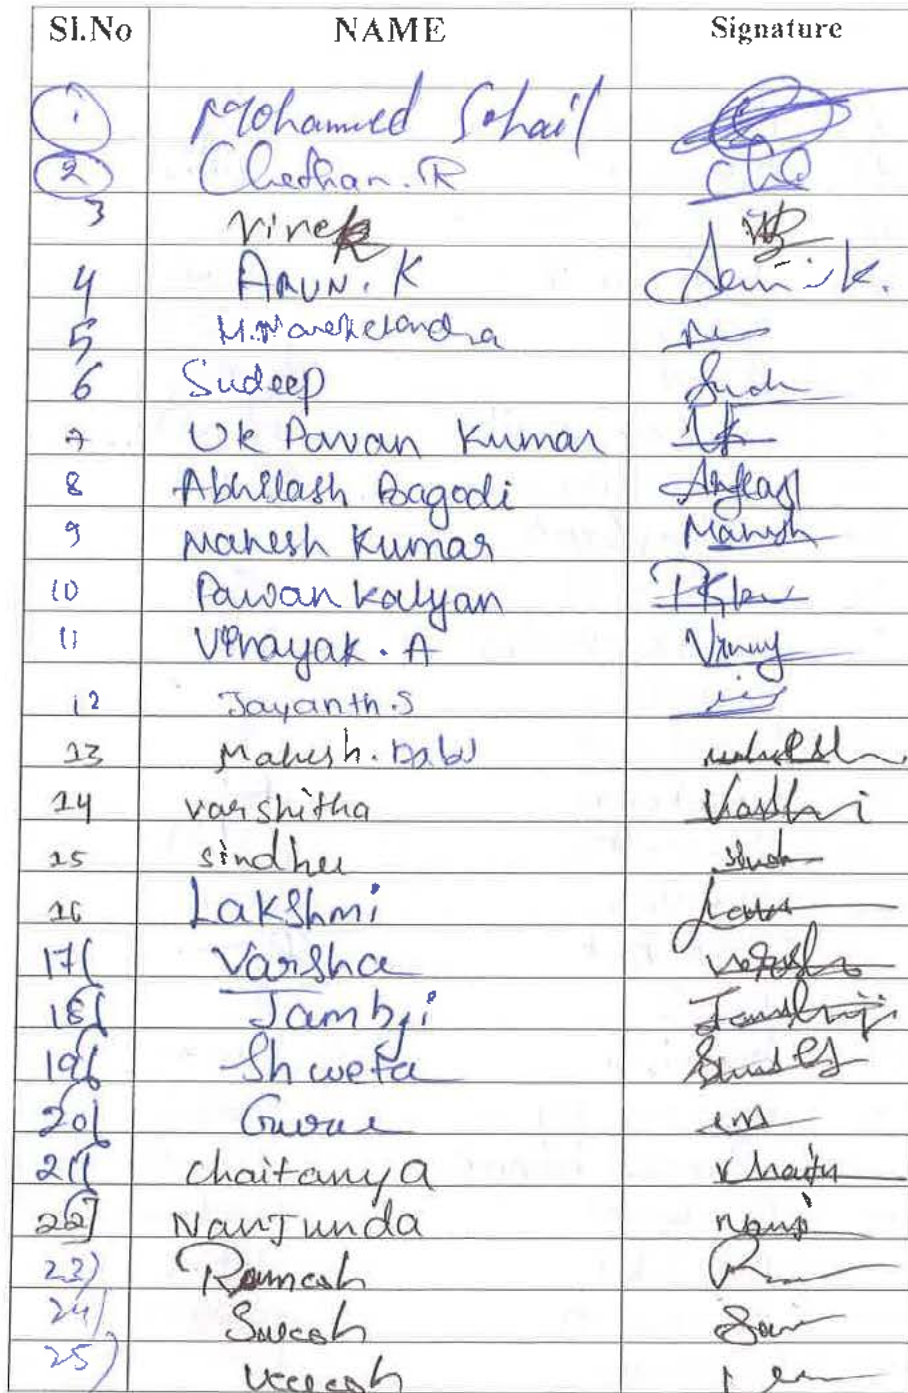 Sl.No NAME Signature
1 Mohamed Sohail
2 Chethan. R Che
3 Vinek
4 ARUN. K Arun. K.
5
6 Sudeep Sude
7 Uk Pavan Kumar Uk
8 Abhilash Bagodi
9 Mahesh Kumar Mahesh
10 Pawan kalyan PK
11 Vinayak. A Vinay
12 Jayanth.S
13 Mahesh. babu
14 varshitha
15 sindhu
16 Lakshmi
17( Varsha
18( Jambji
19( Shweta
20( Guru
21( chaitanya
22) NanJunda nanj
23) Ramesh
24) Suresh
25) Veeresh